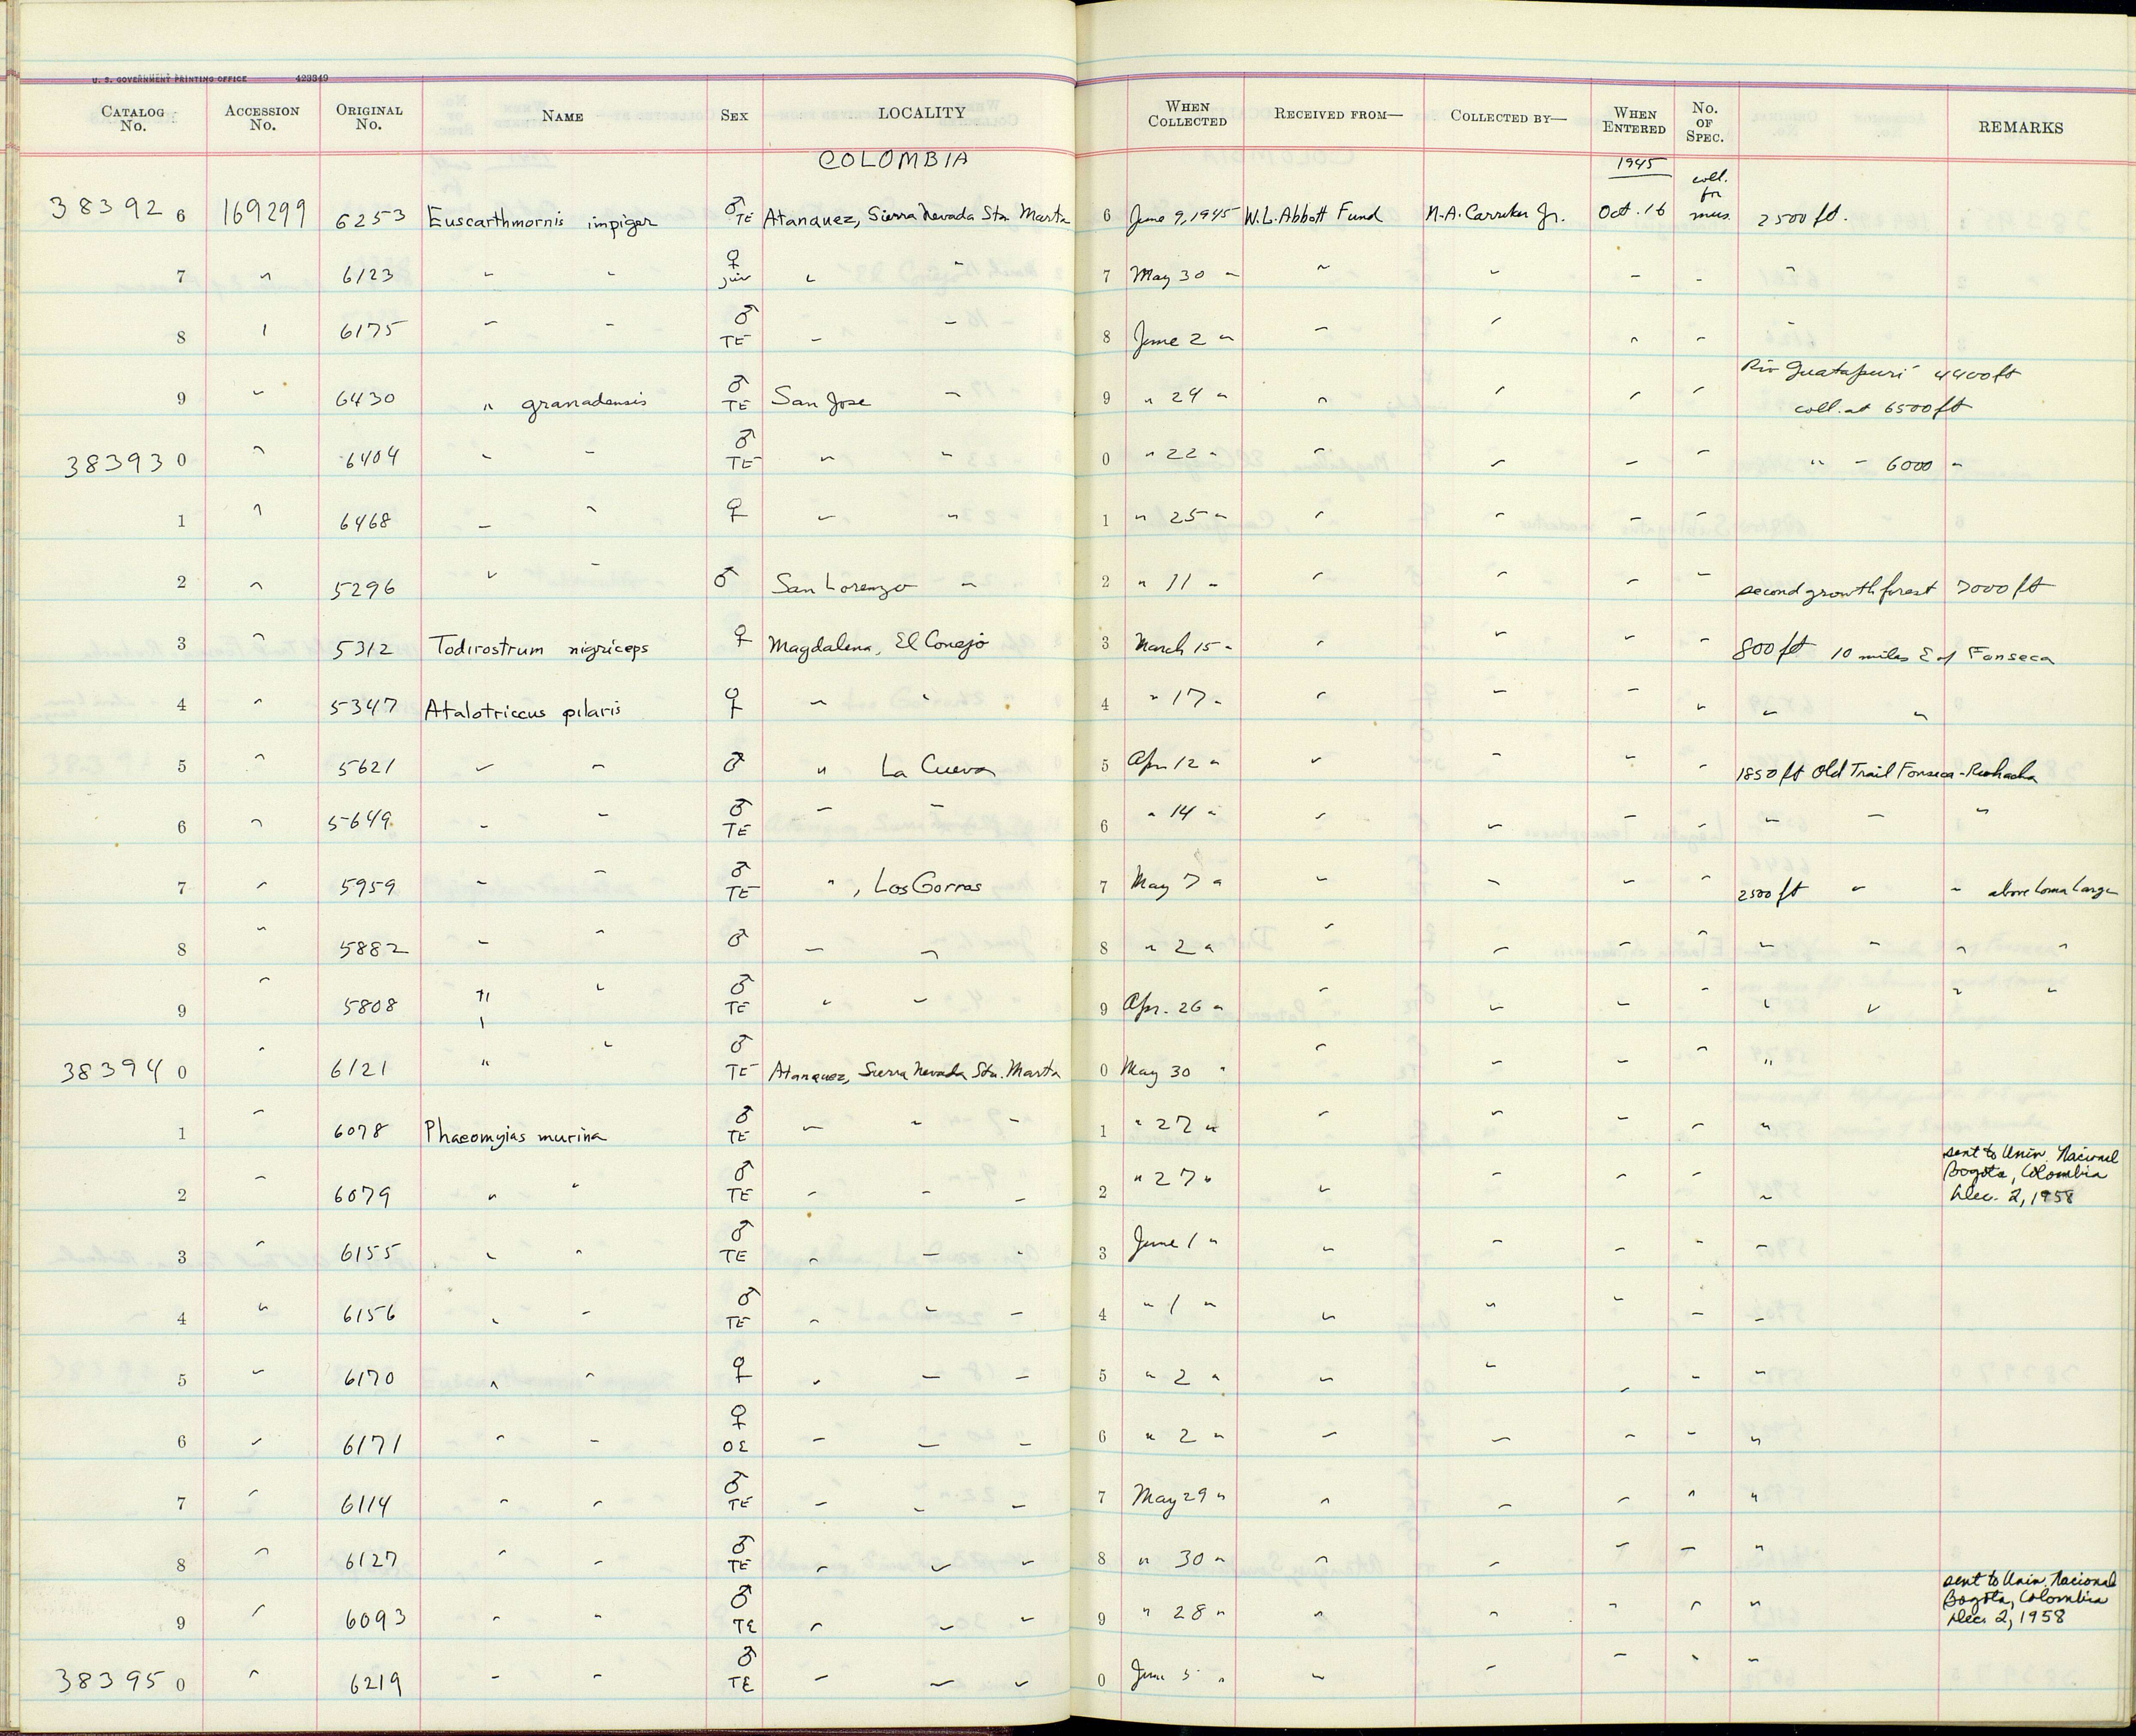 U. S. GOVERNMENT PRINTING OFFICE 423349
CATALOG No. ACCESSION No. ORIGINAL No. NAME SEX LOCALITY WHEN COLLECTED RECEIVED FROM— COLLECTED BY— WHEN ENTERED No. OF SPEC. REMARKS
COLOMBIA 1945
383926 169299 6253 Euscarthmornis impiger ♂ TE Atanquez, Sierra Nevada Sta. Marta 6 June 9, 1945 W.L. Abbott Fund M.A. Carriker Jr. Oct. 16 coll. for mus. 2500 ft.
7 " 6123 " " ♀ juv " " 7 May 30 " " " " " "
8 " 6175 " " ♂ TE " " 8 June 2 " " " " " "
9 " 6430 " granadensis ♂ TE San Jose " 9 " 24 " " " " " Rio Guatapuri 4400 ft
coll. at 6500 ft
383930 " 6404 " " ♂ TE " " 0 " 22 " " " " " " " 6000 "
1 " 6468 " " ♀ " " 1 " 25 " " " " "
2 " 5296 " " ♂ San Lorenzo " 2 " 11 " " " " " second growth forest 7000 ft
3 " 5312 Todirostrum nigriceps ♀ Magdalena, El Conejo 3 March 15 " " " " " 800 ft 10 miles E of Fonseca
4 " 5347 Atalotriccus pilaris ♀ " " 4 " 17 " " " " " " "
5 " 5621 " " ♂ " La Cueva 5 Apr. 12 " " " " " 1850 ft Old Trail Fonseca-Riohacha
6 " 5649 " " ♂ TE " " 6 " 14 " " " " " " " "
7 " 5959 " " ♂ TE ", Los Gorros 7 May 7 " " " " " 2500 ft " " above Loma Larga
8 " 5882 " " ♂ " " 8 " 2 " " " " " " " " "
9 " 5808 " " ♂ TE " " 9 Apr. 26 " " " " " " " " "
383940 " 6121 " " ♂ TE Atanquez, Sierra Nevada Sta. Marta 0 May 30 " " " " " "
1 " 6078 Phaeomyias murina ♂ TE " " " 1 " 27 " " " " " "
2 " 6079 " " ♂ TE " " " 2 " 27 " " " " " " sent to Univ. Nacional
Bogota, Colombia
Dec. 2, 1958
3 " 6155 " " ♂ TE " " " 3 June 1 " " " " " "
4 " 6156 " " ♂ TE " " " 4 " 1 " " " " " "
5 " 6170 " " ♀ " " " 5 " 2 " " " " " "
6 " 6171 " " ♀ OE " " " 6 " 2 " " " " " "
7 " 6114 " " ♂ TE " " " 7 May 29 " " " " " "
8 " 6127 " " ♂ TE " " " 8 " 30 " " " " " "
9 " 6093 " " ♂ TE " " " 9 " 28 " " " " " " sent to Univ. Nacional
Bogota, Colombia
Dec. 2, 1958
383950 " 6219 " " ♂ TE " " " 0 June 5 " " " " " "